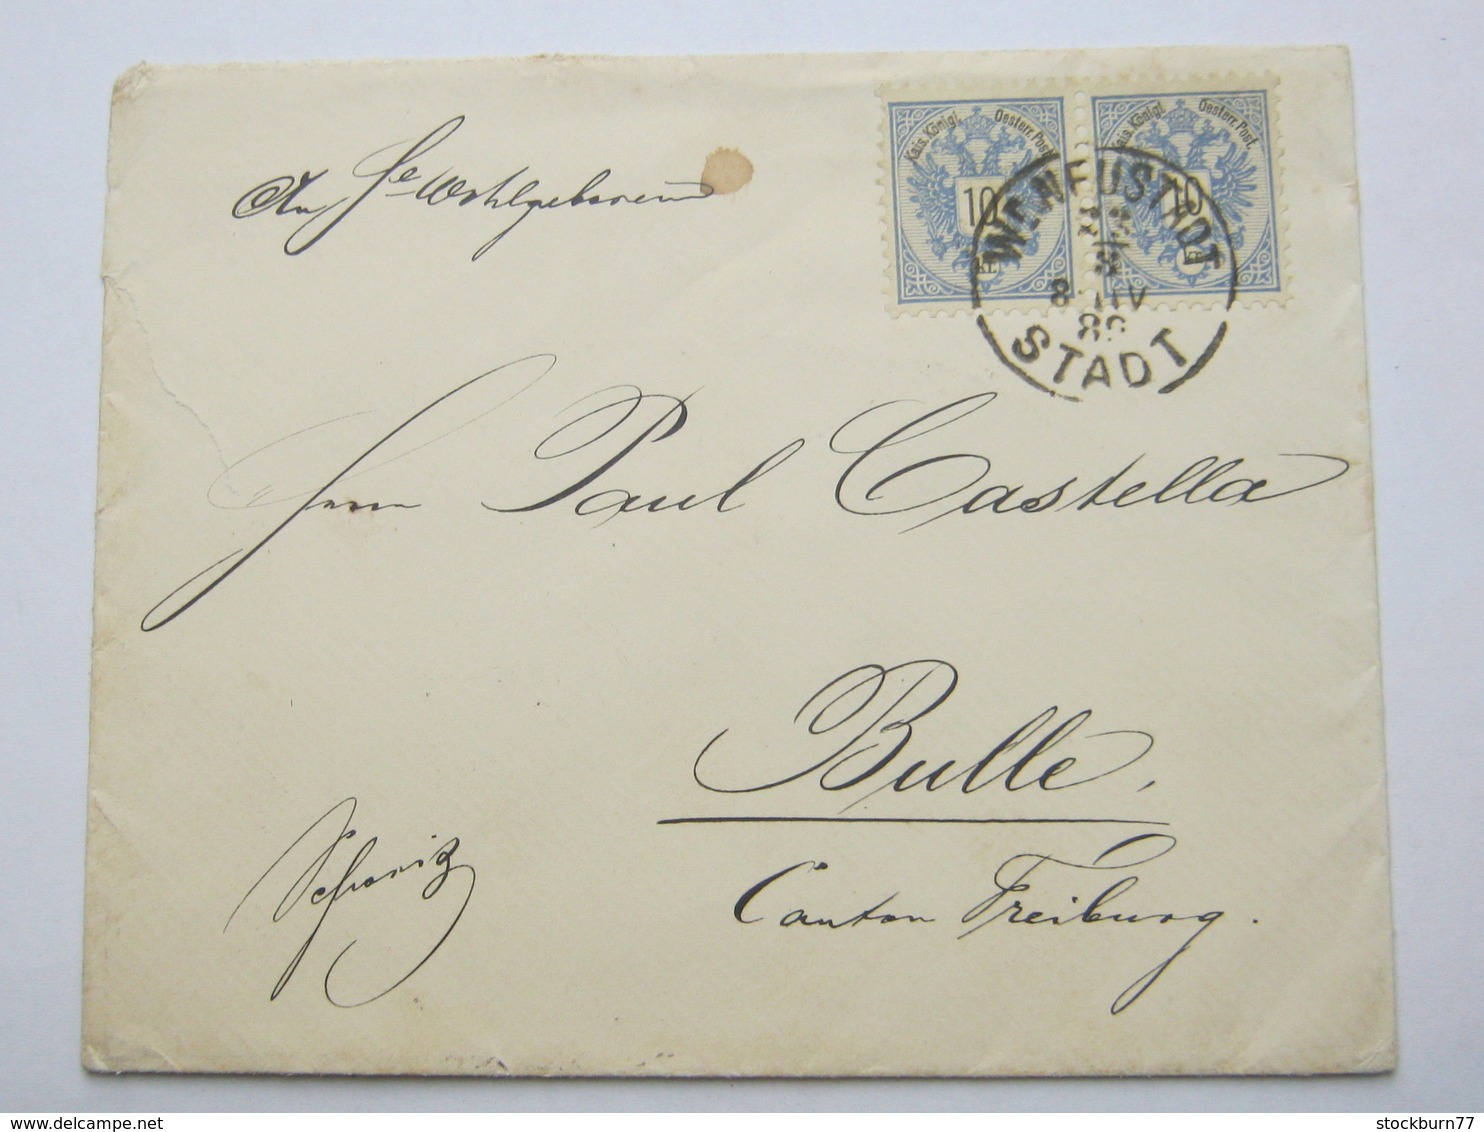 An Se Wohlgeboren
Kais. Königl. Oesterr. Post.
10
Kr.
Kais. Königl. Oesterr. Post.
10
WR. NEUSTADT
STADT
Herrn Paul Castella
Bulle.
Schweiz
Canton Freiburg.
stockburn77